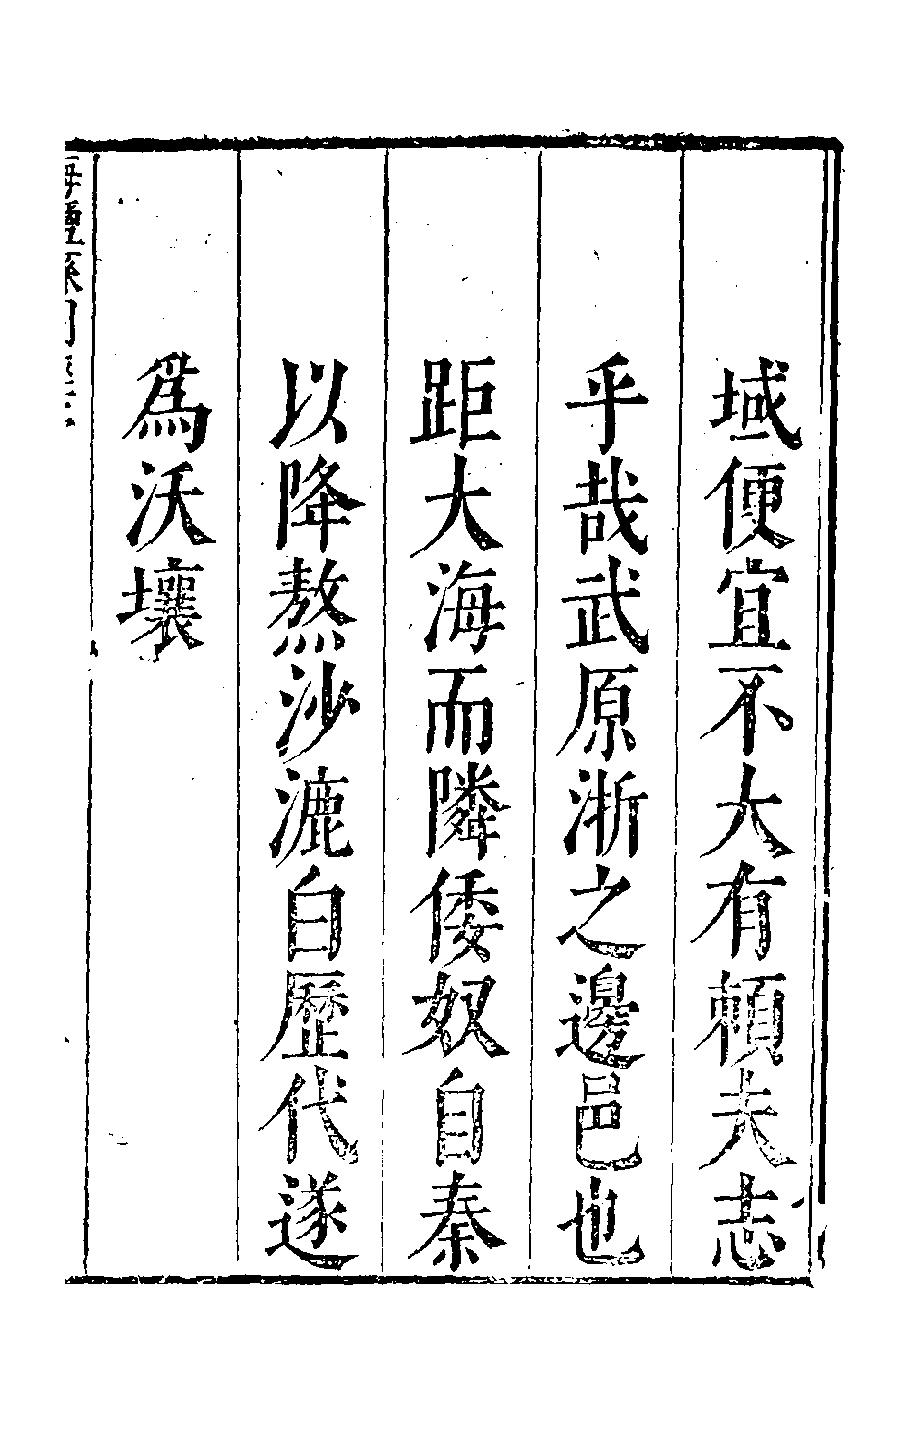 域便宜不大有頼夫志
乎哉武原浙之邊邑也
距大海而隣倭奴自秦
以降熬沙漉白歷代遂
為沃壤